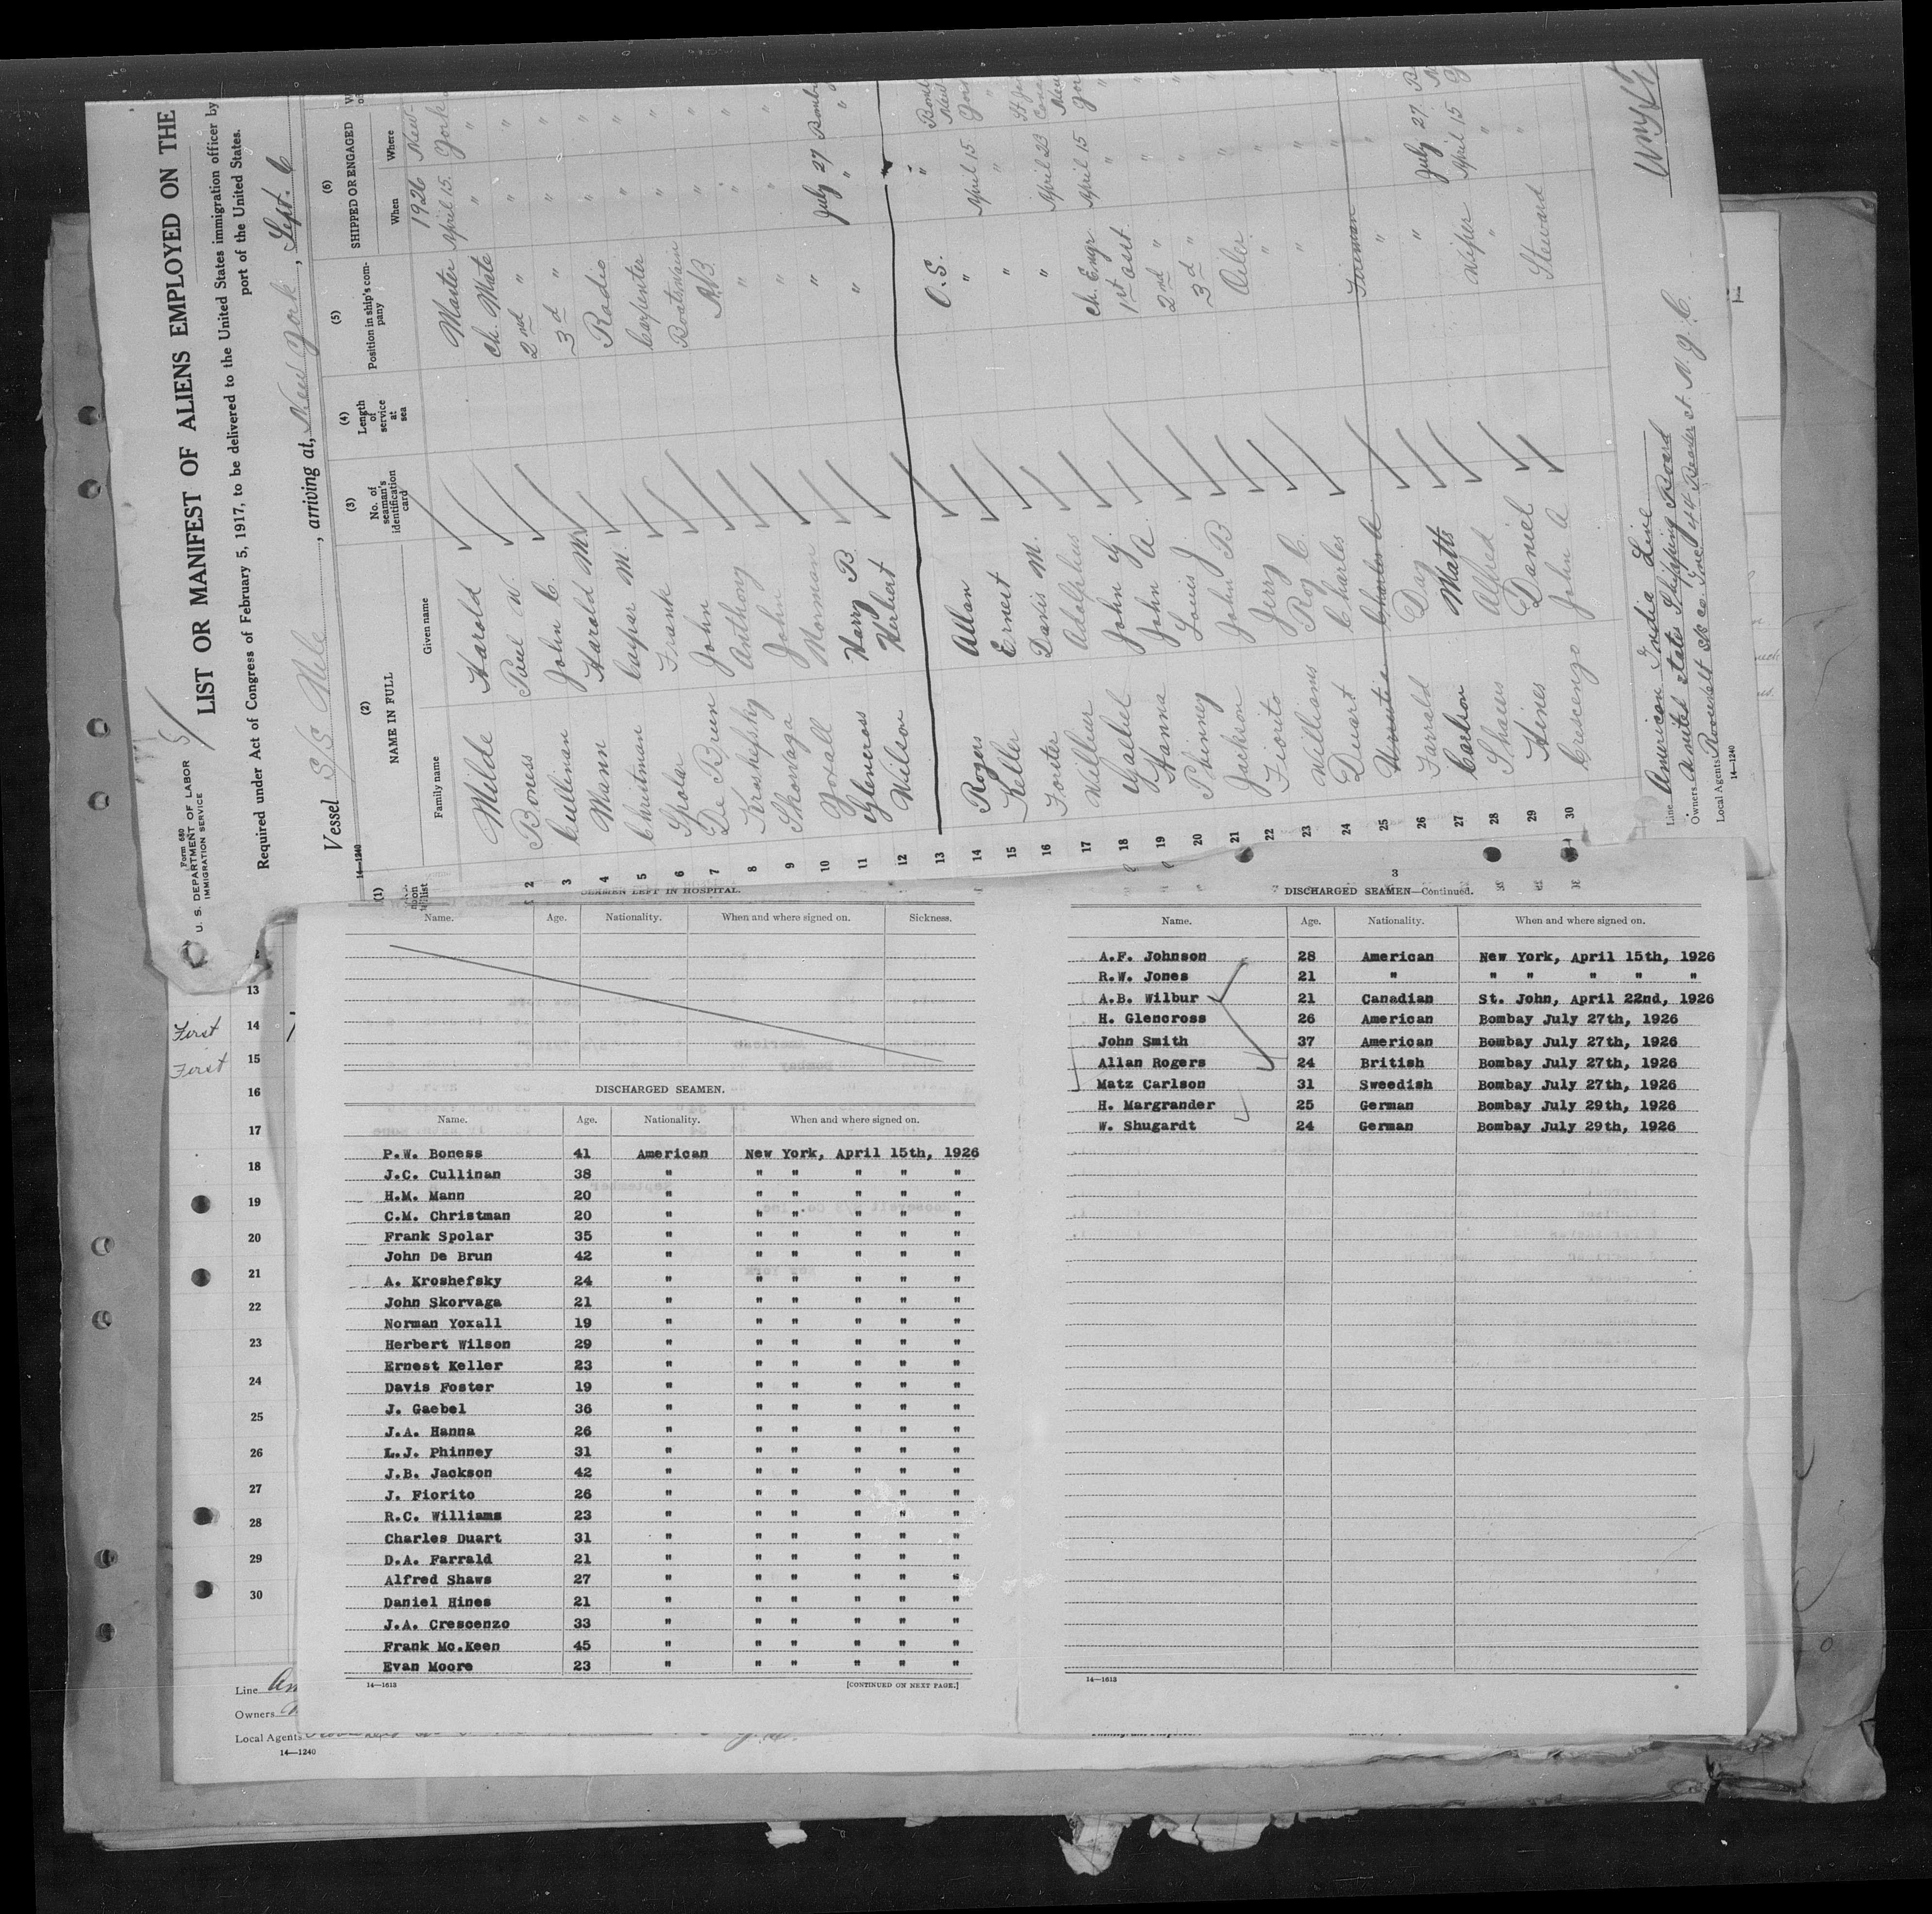 Form 680
U. S. DEPARTMENT OF LABOR
IMMIGRATION SERVICE
LIST OR MANIFEST OF ALIENS EMPLOYED ON THE
Required under Act of Congress of February 5, 1917, to be delivered to the United States immigration officer by
port of the United States.
Vessel S/S Nile, arriving at, New York, Sept. 6
14—1240
(1) (2) (3) (4) (5) (6)
NAME IN FULL No. of seaman's identification card Length of service at sea Position in ship's company SHIPPED OR ENGAGED
Family name Given name When Where
1926 New York
Milde Harold Master April 15.
2 Boness Paul W. Ch. Mate " "
3 Cullinan John C. 2nd " " "
4 Mann Harold M. 3d " " "
5 Christman Caspar M. Radio " "
6 Spolar Frank Carpenter " "
7 De Brun John Boatswain " "
8 Kroshefsky Anthony A.B. " "
9 Skorvaga John " " "
10 Yoxall Norman " " "
11 Glencross Harry B. " July 27
12 Wilson Herbert "
13
14 Rogers Allan O.S. "
15 Keller Ernest " April 15
16 Foster Davis M. " "
17 Wilbur Adolphus " April 23
18 Gaebel John G. Ch. Engr April 15
19 Hanna John A. 1st asst "
20 Phinney Louis J. 2nd " "
21 Jackson John B 3d " "
22 Fiorito Jerry Oiler "
23 Williams Roy C. " "
24 Duart Charles " "
25 Charles A Fireman
26 Farrald Day "
27 Carlson Matts " July 27
28 Shaws Alfred Wiper April 15
29 Hines Daniel " "
30 Crescenzo John A Steward "
Line American India Line
Owners United States Shipping Board
Local Agents Roosevelt SS Co. Inc 44 Beaver st. N.Y.C.
14—1240
13
First 14
First 15
16
17
18
19
20
21
22
23
24
25
26
27
28
29
30
Line
Owners
Local Agents
14—1240
SEAMEN LEFT IN HOSPITAL.
Name. Age. Nationality. When and where signed on. Sickness.
DISCHARGED SEAMEN.
Name. Age. Nationality. When and where signed on.
P.W. Boness 41 American New York, April 15th, 1926
J.C. Cullinan 38 " " " " " "
H.M. Mann 20 " " " " " "
C.M. Christman 20 " " " " " "
Frank Spolar 35 " " " " " "
John De Brun 42 " " " " " "
A. Kroshefsky 24 " " " " " "
John Skorvaga 21 " " " " " "
Norman Yoxall 19 " " " " " "
Herbert Wilson 29 " " " " " "
Ernest Keller 23 " " " " " "
Davis Foster 19 " " " " " "
J. Gaebel 36 " " " " " "
J.A. Hanna 26 " " " " " "
L.J. Phinney 31 " " " " " "
J.B. Jackson 42 " " " " " "
J. Fiorito 26 " " " " " "
R.C. Williams 23 " " " " " "
Charles Duart 31 " " " " " "
D.A. Farrald 21 " " " " " "
Alfred Shaws 27 " " " " " "
Daniel Hines 21 " " " " " "
J.A. Crescenzo 33 " " " " " "
Frank Mc.Keen 45 " " " " " "
Evan Moore 23 " " " " " "
14—1613 [CONTINUED ON NEXT PAGE.]
3
DISCHARGED SEAMEN—Continued.
Name. Age. Nationality. When and where signed on.
A.F. Johnson 28 American New York, April 15th, 1926
R.W. Jones 21 " " " " " "
A.B. Wilbur 21 Canadian St. John, April 22nd, 1926
H. Glencross 26 American Bombay July 27th, 1926
John Smith 37 American Bombay July 27th, 1926
Allan Rogers 24 British Bombay July 27th, 1926
Matz Carlson 31 Sweedish Bombay July 27th, 1926
H. Margrander 25 German Bombay July 29th, 1926
W. Shugardt 24 German Bombay July 29th, 1926
14—1613